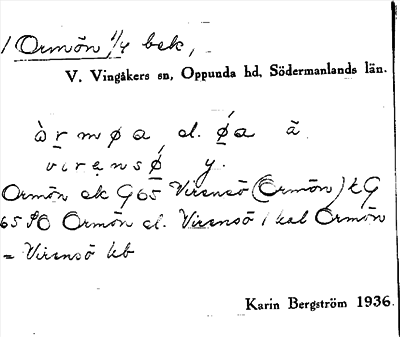 1 Ormön 1/4 bek,
V. Vingåkers sn, Oppunda hd, Södermanlands län.
òrmøa, el. ǿa ä
virensǿ y.
Ormön ek G65 Virensö (Ormön) kG
65 Ormön el. Virensö 1 hal Ormön
= Virensö kb
Karin Bergström 1936.